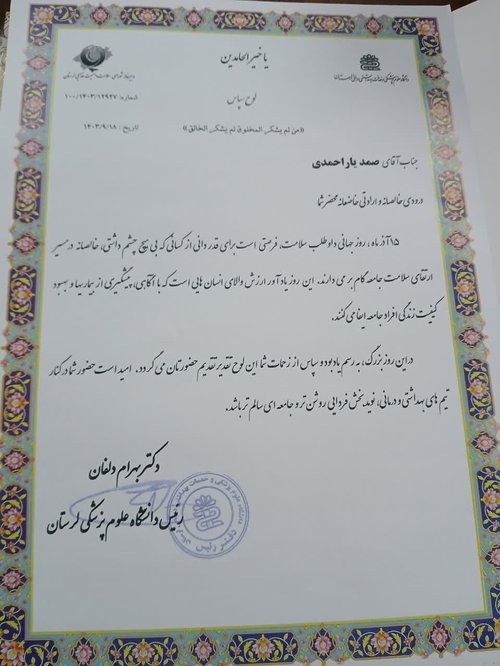 یا خیر الحامدین
دانشگاه علوم پزشکی و خدمات بهداشتی درمانی لرستان
شماره: ۱۰۰/۱۴۰۳/۱۲۹۴۷
لوح سپاس
تاریخ: ۱۴۰۳/۹/۱۸
«من لم یشکر المخلوق لم یشکر الخالق»
جناب آقای صمد یاراحمدی
درودی خالصانه و ارادتی خاضعانه محضر شما
۱۵ آذر ماه، روز جهانی داوطلب سلامت، فرصتی است برای قدردانی از کسانی که بی هیچ چشم داشتی، خالصانه در مسیر
ارتقای سلامت جامعه گام بر می دارند. این روز یادآور ارزش والای انسان هایی است که با آگاهی، پیشگیری از بیماریها و بهبود
کیفیت زندگی افراد جامعه ایفا می کنند.
در این روز بزرگ، به رسم یادبود و سپاس از زحمات شما این لوح تقدیر تقدیم حضورتان می گردد. امید است حضور شما در کنار
تیم های بهداشتی و درمانی، نوید بخش فردایی روشن تر و جامعه ای سالم تر باشد.
دکتر بهرام دلفان
رئیس دانشگاه علوم پزشکی لرستان
دفتر رئیس